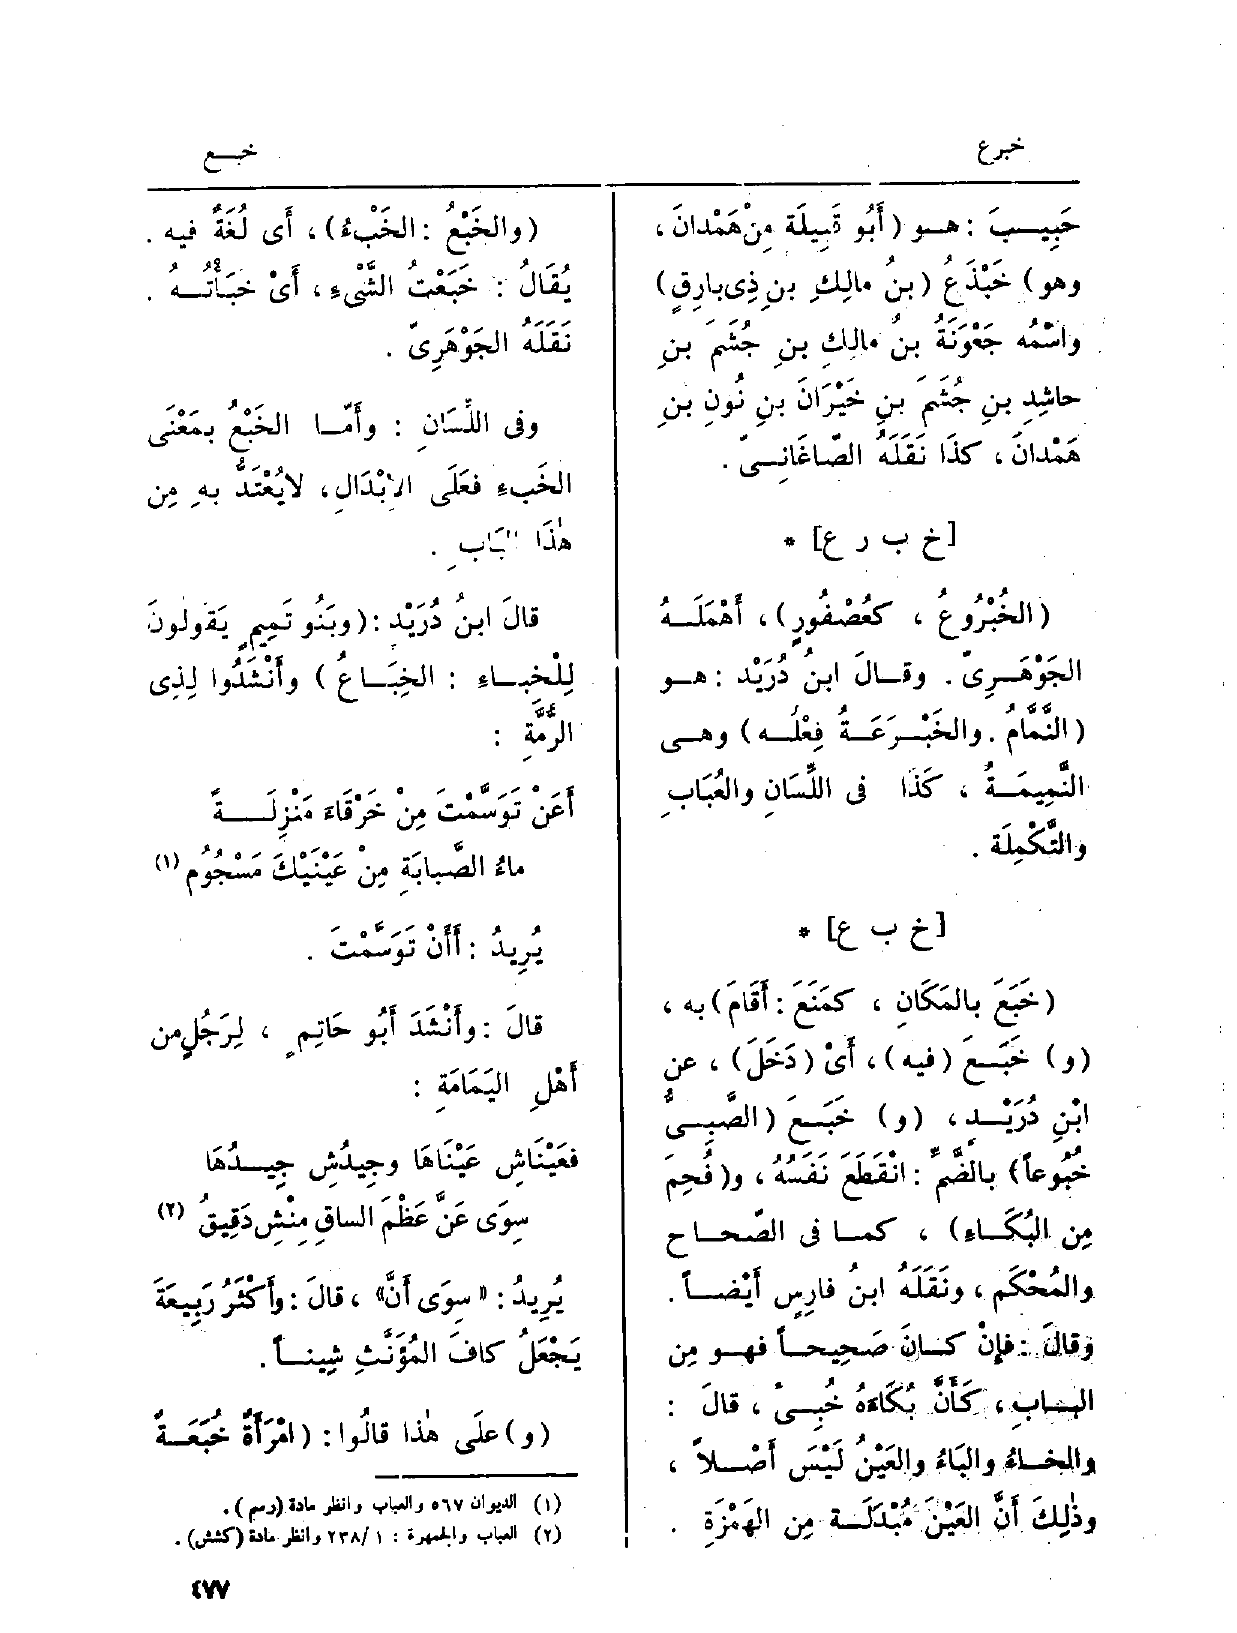 خبرع
خبع
حَبِيبَ : هو ( أَبُو قَبِيلَة مِنْ هَمْدانَ ،
وهو ) خَبْذَعُ ( بنُ مالِكِ بنِ ذِى بارِقٍ )
واسْمُه جَعْوَنَةُ بنُ مالِكِ بنِ جُشَمَ بنِ
حاشِدِ بنِ جُشَمَ بنِ خَيْرَانَ بنِ نُونِ بنِ
هَمْدانَ ، كذا نَقَلَهُ الصّاغَانِىّ .
[ خ ب ر ع ] *
( الخُبْرُوعُ ، كعُصْفُورٍ ) ، أَهْمَلَهُ
الجَوْهَرِىّ . وقالَ ابنُ دُرَيْد : هو
( النَّمّامُ . والخَبْرَعَةُ فِعْلُه ) وهى
النَّمِيمَةُ ، كَذَا فى اللِّسَانِ والعُبَابِ
والتَّكْمِلَة .
[ خ ب ع ] *
( خَبَعَ بالمَكَانِ ، كمَنَعَ : أَقَامَ ) به ،
( و ) خَبَعَ ( فيه ) ، أَىْ ( دَخَلَ ) ، عن
ابْنِ دُرَيْد ، ( و ) خَبَعَ ( الصَّبِىُّ
خُبُوعاً ) بالضَّمِّ : انْقَطَع نَفَسُهُ ، و( فُحِمَ
مِن البُكَاءِ ) ، كما فى الصّحاح
والمُحْكَم ، ونَقَلَهُ ابنُ فارِسٍ أَيْضاً .
وَقالَ : فإِنْ كانَ صَحِيحاً فهو مِن
الباب ، كَأَنَّ بُكَاءَهُ خُبِىَ ، قالَ :
والخاءُ والبَاءُ والعَيْنُ لَيْسَ أَصْلاً ،
وذٰلِكَ أَنَّ العَيْنَ مُبْدَلَة مِن الهَمْزَةِ .
( والخَبْعُ : الخَبْءُ ) ، أَى لُغَةٌ فيه .
يُقَالُ : خَبَعْتُ الشَّىْءَ ، أَىْ خَبَأْتُهُ .
نَقَلَهُ الجَوْهَرِىّ .
وفى اللِّسَانِ : وأَمّا الخَبْعُ بمَعْنَى
الخَبءِ فعَلَى الإِبْدَالِ ، لايُعْتَدُّ بهِ مِن
هٰذَا البَابِ .
قالَ ابنُ دُرَيْد : ( وبَنُو تَمِيمٍ يَقولونَ
لِلْخِباءِ : الخِبَاعُ ) وأَنْشَدُوا لِذِى
الرُّمَّةِ :
أَعَنْ تَوَسَّمْتَ مِنْ خَرْقَاءَ مَنْزِلَةً
ماءُ الصَّبابَةِ مِنْ عَيْنَيْكَ مَسْجُوُم (١)
يُرِيدُ : أَأَنْ تَوَسَّمْتَ .
قالَ : وأَنْشَدَ أَبُو حَاتِمٍ ، لِرَجُلٍ من
أَهْلِ اليَمَامَةِ :
فعَيْنَاشِ عَيْنَاهَا وجِيدُشِ جِيدُهَا
سِوَى عَنَّ عَظْمَ الساقِ مِنْشِ دَقِيقُ (٢)
يُرِيدُ : « سِوَى أَنَّ » ، قالَ : وأَكْثَرُ رَبِيعَةَ
يَجْعَلُ كافَ المُؤَنَّثِ شِيناً .
( و ) علَى هٰذا قالُوا : ( امْرَأَةٌ خُبَعَةٌ
(١) الديوان ٥٦٧ والعباب وانظر مادة (رسم) .
(٢) العباب والجمهرة : ١ /٢٣٨ وانظر مادة (كشش) .
٤٧٧